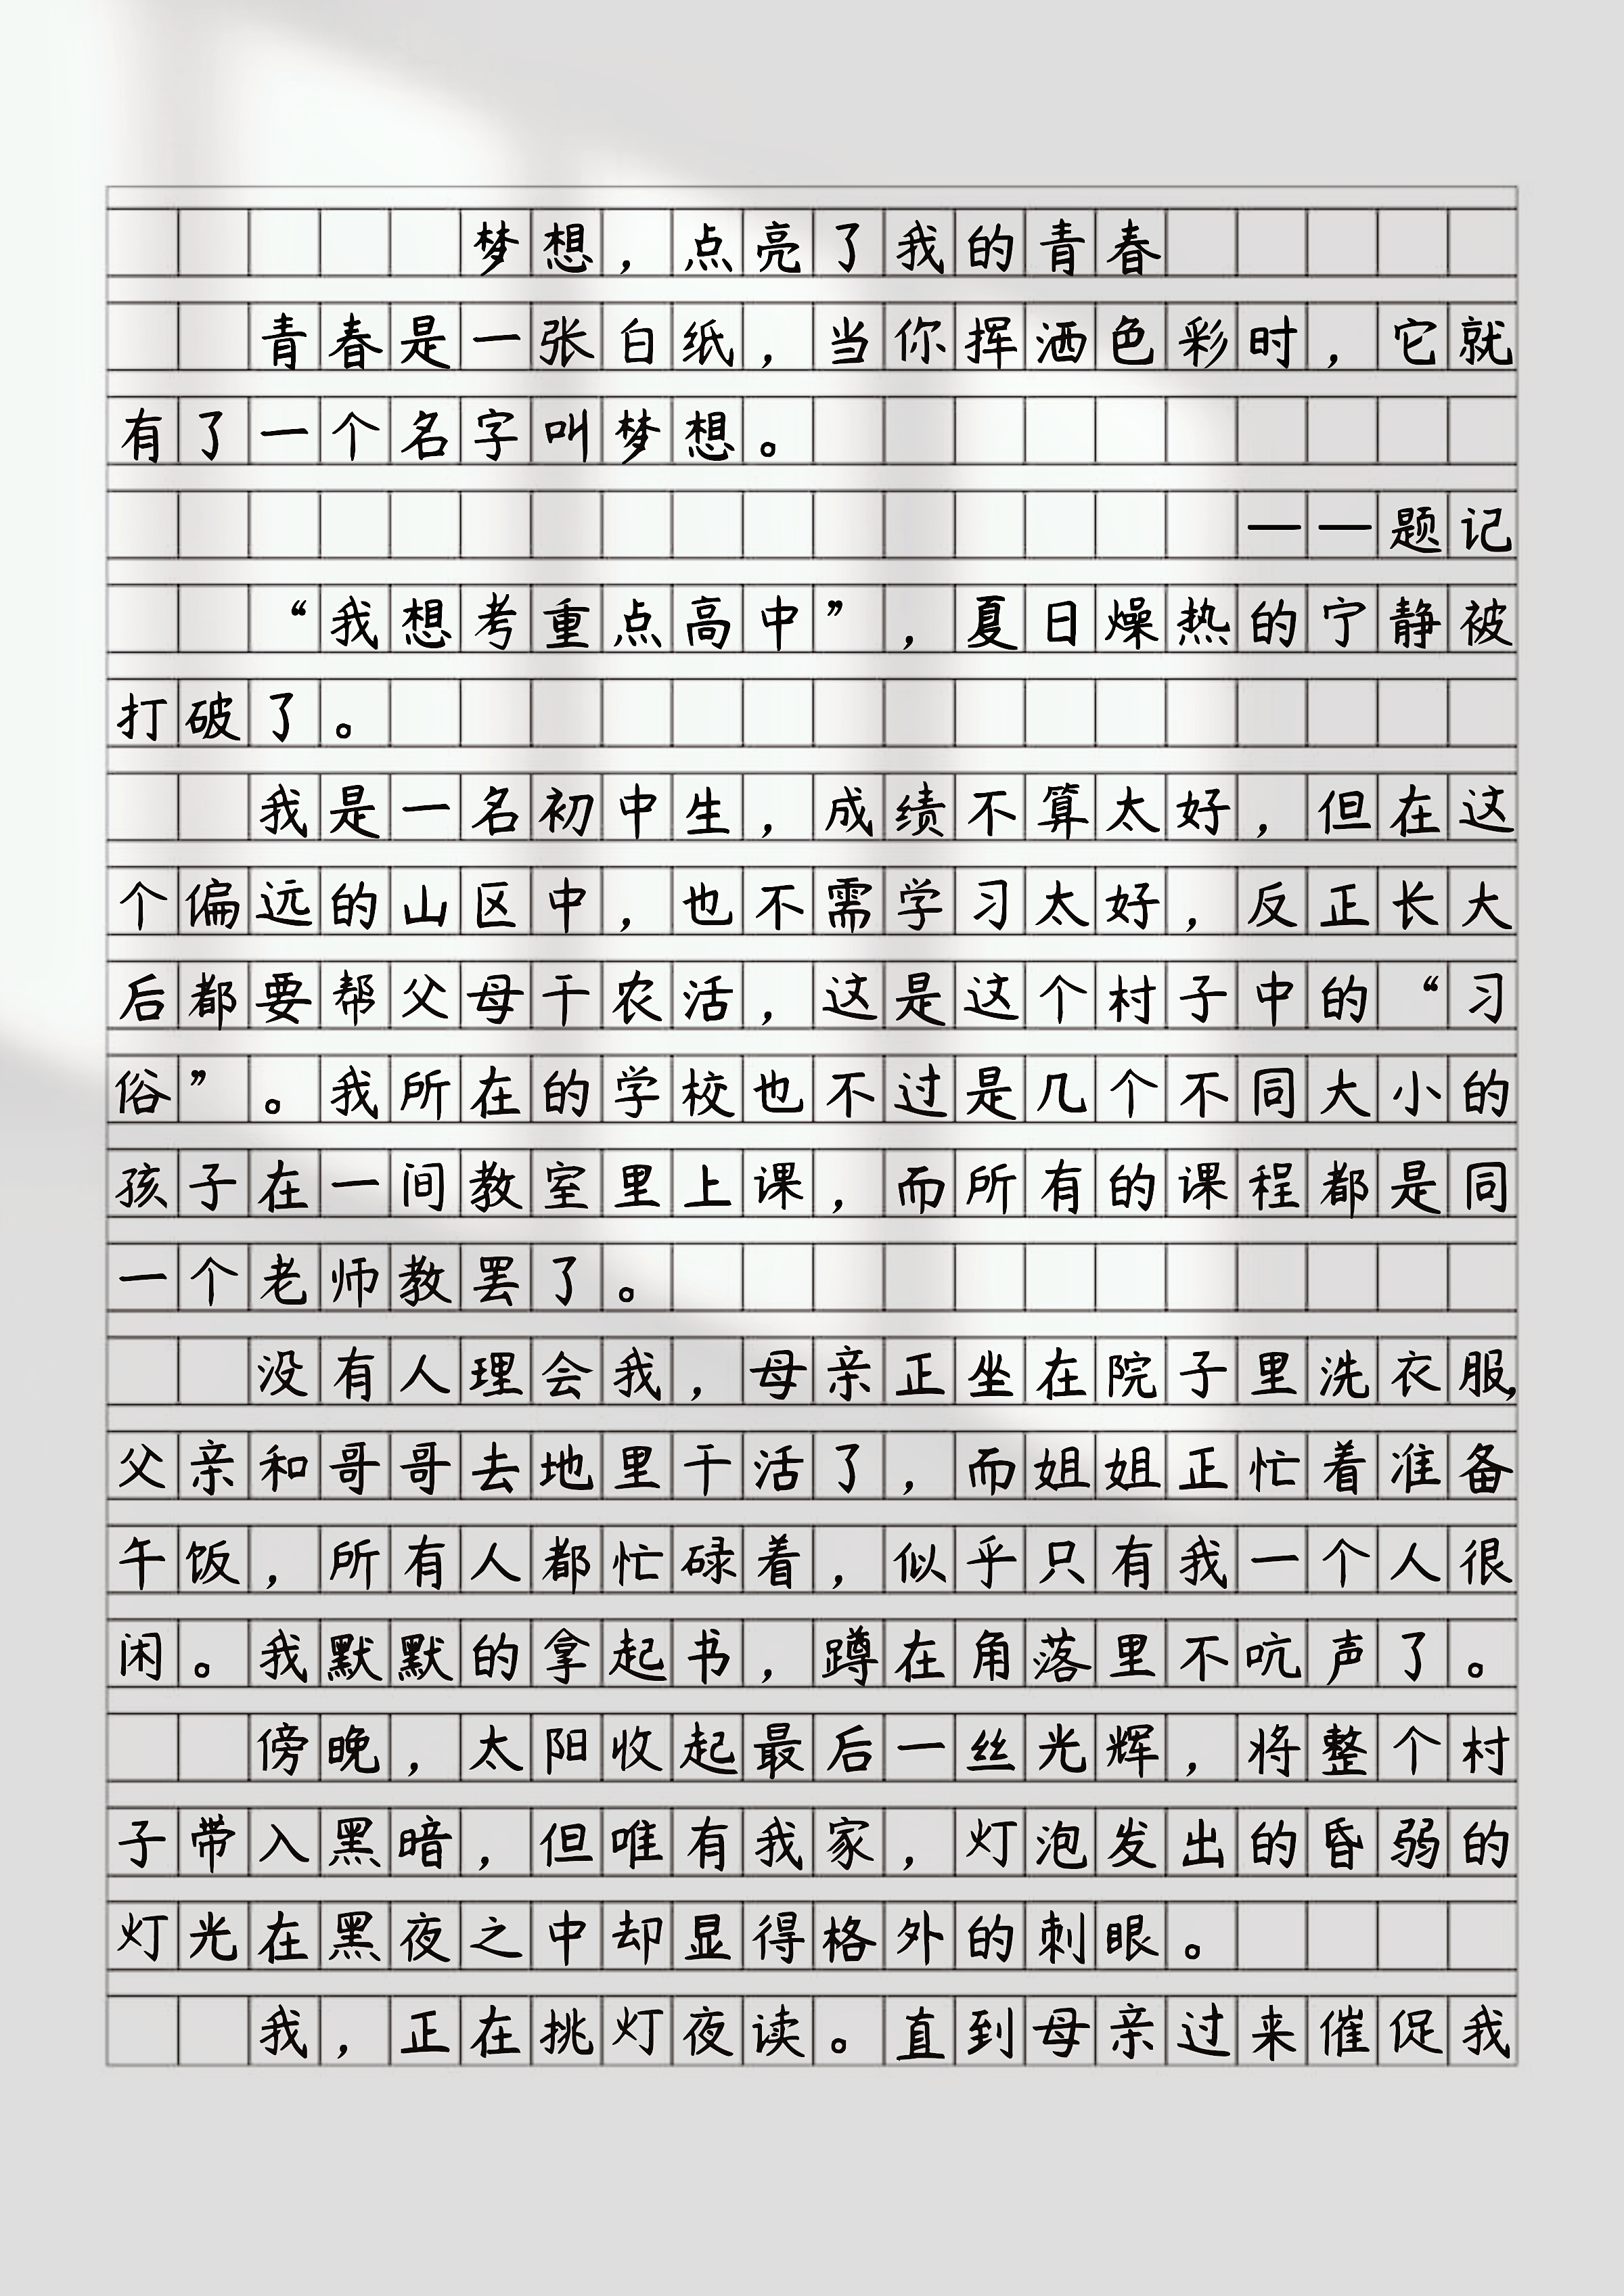 梦想，点亮了我的青春
青春是一张白纸，当你挥洒色彩时，它就
有了一个名字叫梦想。
——题记
“我想考重点高中”，夏日燥热的宁静被
打破了。
我是一名初中生，成绩不算太好，但在这
个偏远的山区中，也不需学习太好，反正长大
后都要帮父母干农活，这是这个村子中的“习
俗”。我所在的学校也不过是几个不同大小的
孩子在一间教室里上课，而所有的课程都是同
一个老师教罢了。
没有人理会我，母亲正坐在院子里洗衣服，
父亲和哥哥去地里干活了，而姐姐正忙着准备
午饭，所有人都忙碌着，似乎只有我一个人很
闲。我默默的拿起书，蹲在角落里不吭声了。
傍晚，太阳收起最后一丝光辉，将整个村
子带入黑暗，但唯有我家，灯泡发出的昏弱的
灯光在黑夜之中却显得格外的刺眼。
我，正在挑灯夜读。直到母亲过来催促我